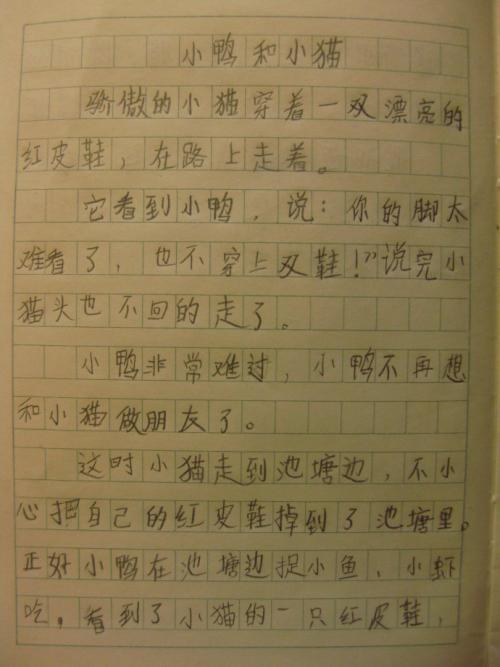 小鸭和小猫
骄傲的小猫穿着一双漂亮的
红皮鞋，在路上走着。
它看到小鸭，说：你的脚太
难看了，也不穿上双鞋！”说完小
猫头也不回的走了。
小鸭非常难过，小鸭不再想
和小猫做朋友了。
这时小猫走到池塘边，不小
心把自己的红皮鞋掉到了池塘里。
正好小鸭在池塘边捉小鱼、小虾
吃，看到了小猫的一只红皮鞋，